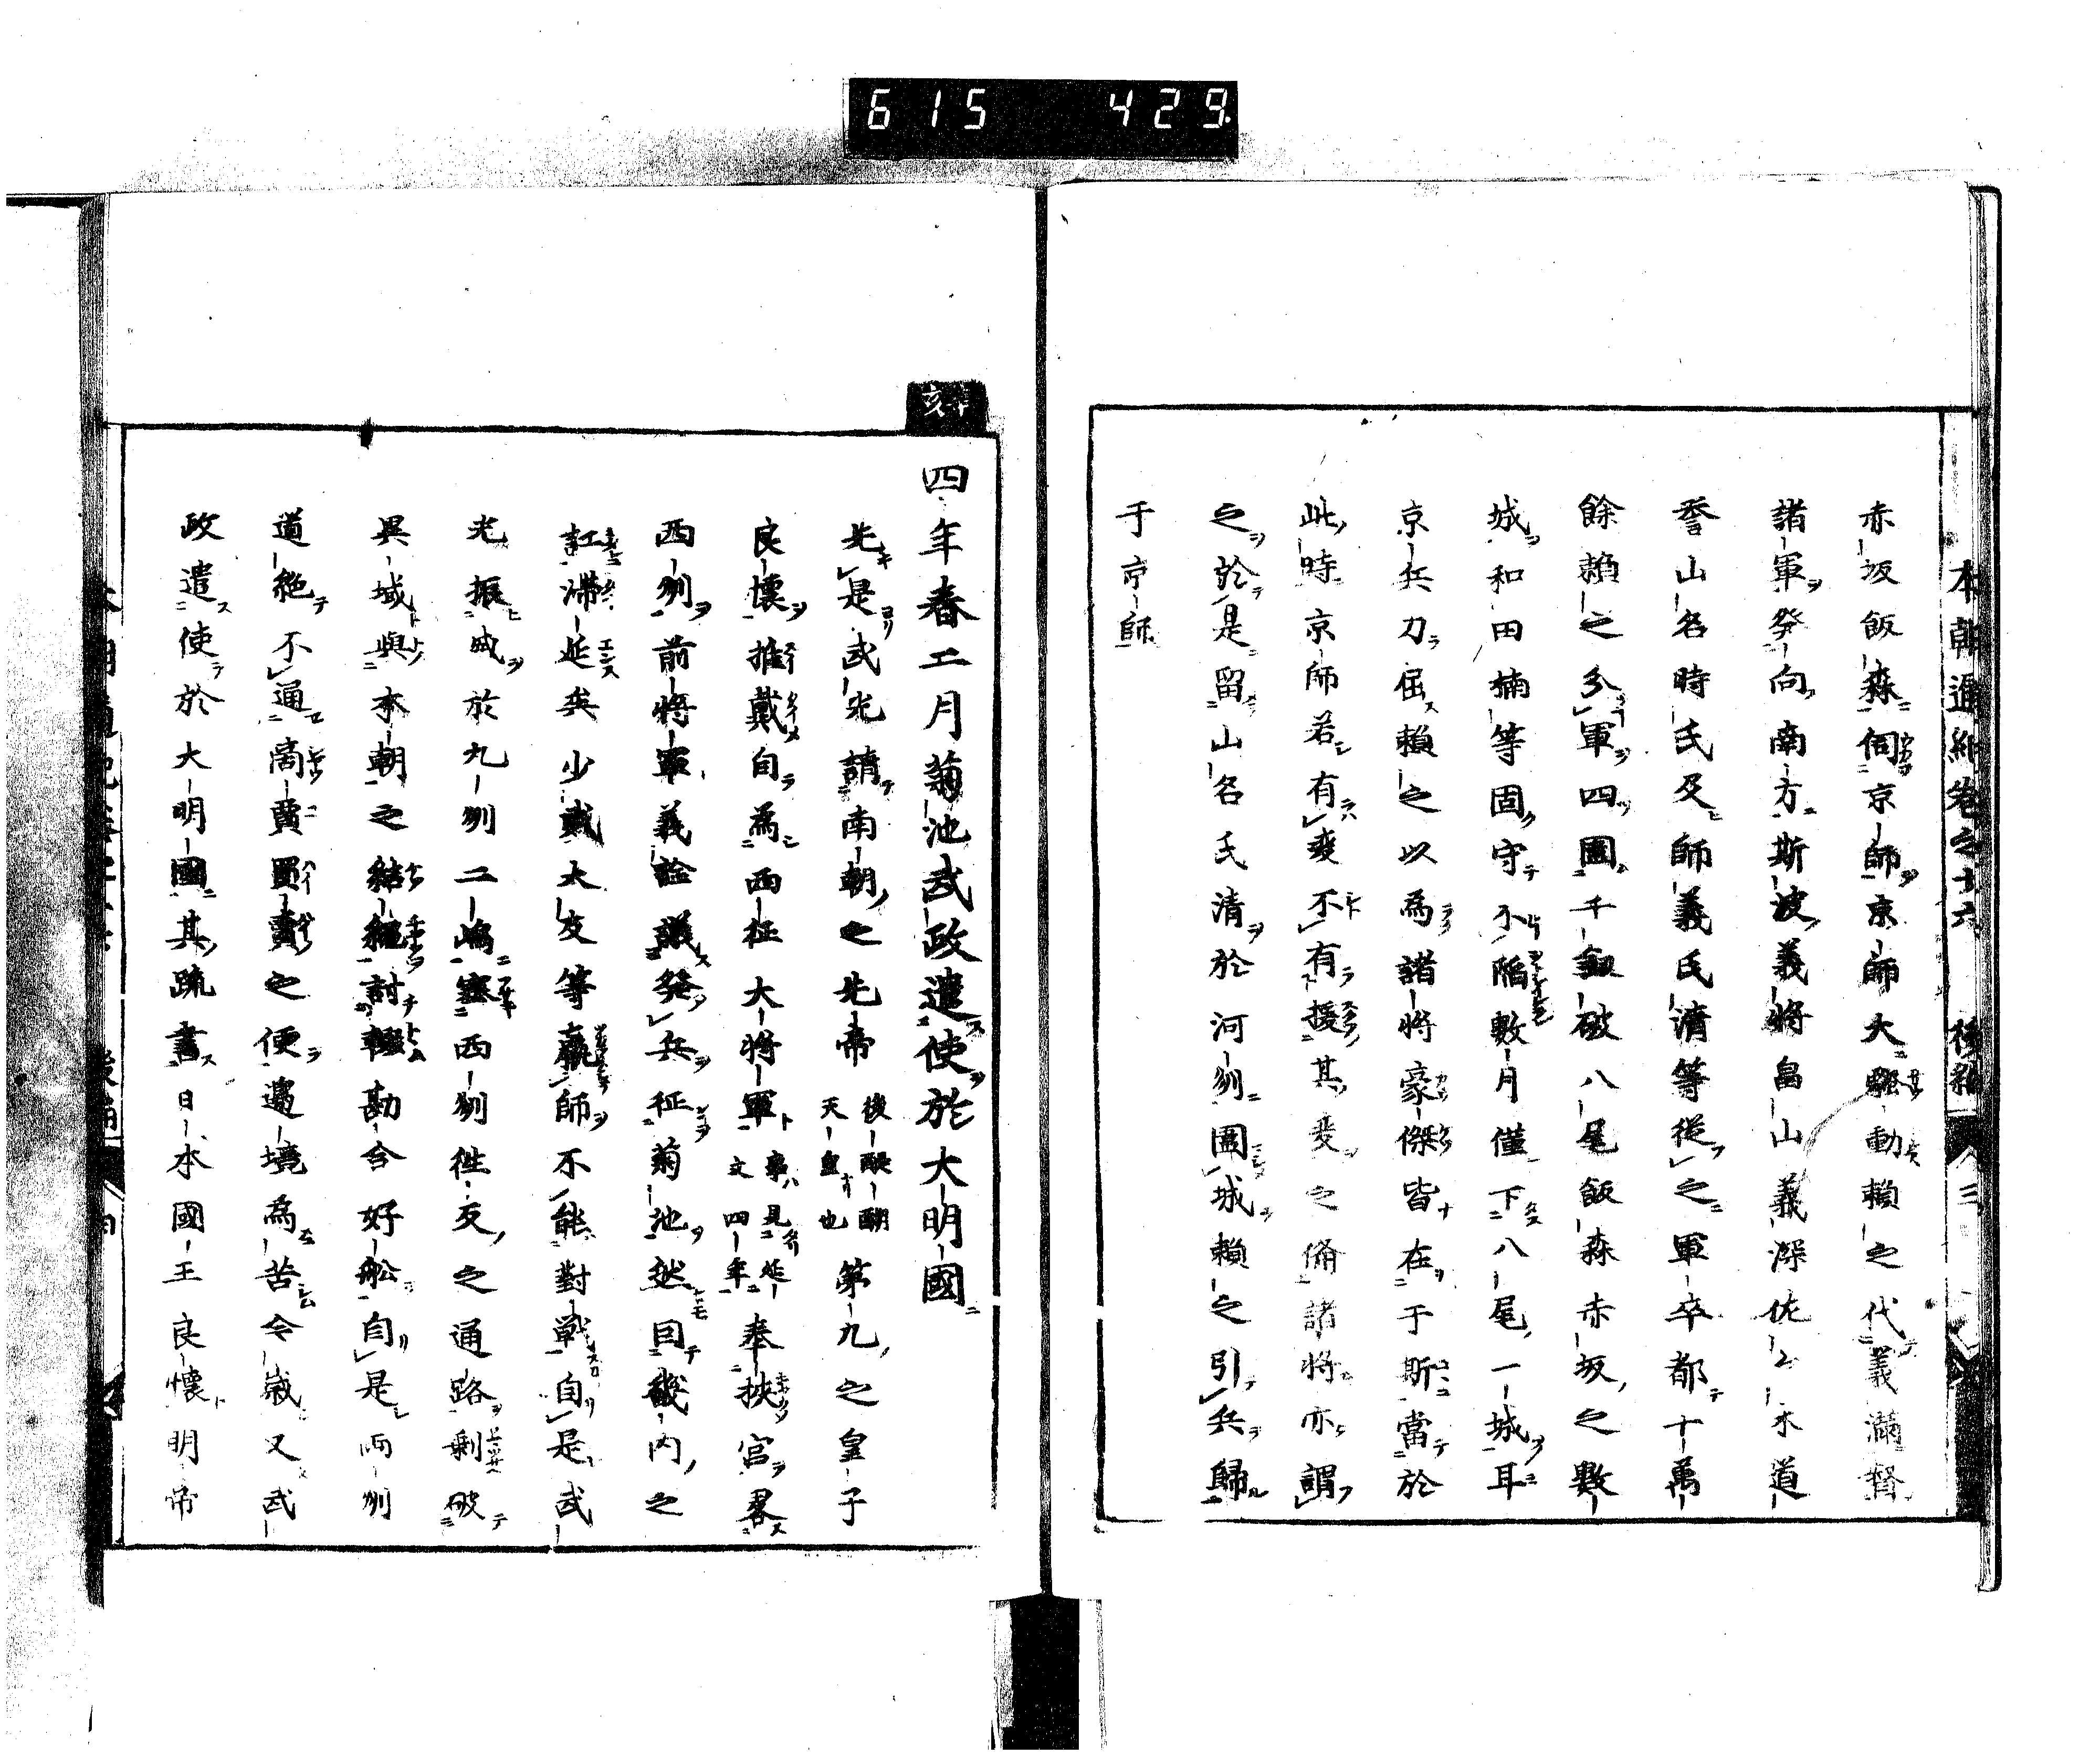 615 429
本朝通紀卷之十六 後編 三
赤坂飯森伺京師京師大騷動賴之代義滿督
諸軍發向南方斯波義將畠山義深佐々木道
誉山名時氏及師義氏清等從之軍卒都十萬
餘賴之分軍四圍千劔破八尾飯森赤坂之數
城和田楠等固守不陷數月僅下八尾一城耳
京兵力屈賴之以為諸將豪傑皆在于斯當於
此時京師若有変不有援其変之備諸將亦謂
之於是留山名氏清於河刕圍城賴之引兵歸
于京師
亥辛
四年春二月菊池武政遣使於大明國
先是武光請南朝之先帝後醍醐天皇也第九之皇子
良懷推戴自為西征大將軍事見延文四年奉挾宮畧
西刕前將軍義詮議發兵征菊池然囙畿内之
訌滯延矣少貳大友等羸師不能對戰自是武
光振威於九刕二嶋塞西刕徃反之通路剩破
異域與本朝之結䋲討轘勘合好舩自是両刕
道絶不通商費買賣之便邊境為苦今歳又武
政遣使於大明國其疏書日本國王良懷明帝